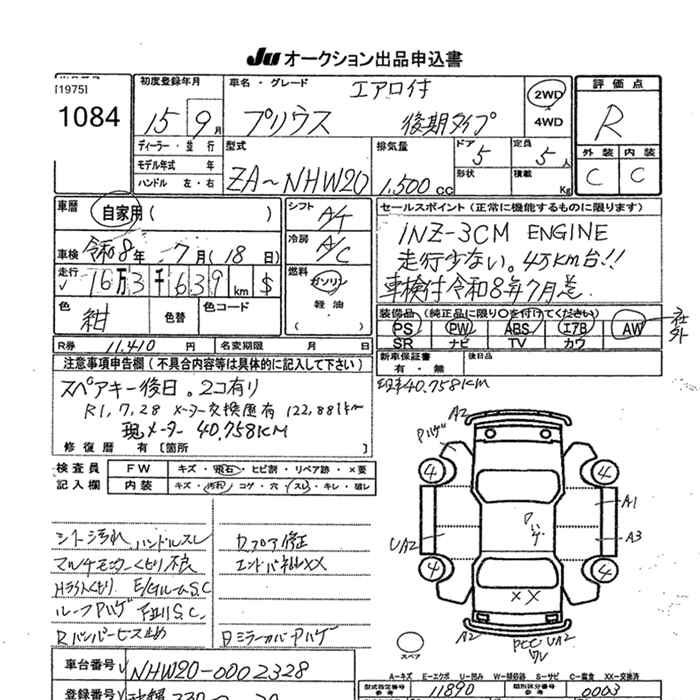 Ju オークション出品申込書
[1975]
1084
初度登録年月
15 9月
車名・グレード
エアロ付
プリウス 後期タイプ
2WD
4WD
評価点
R
外装 内装
C C
ディーラー・並行
モデル年式 年
ハンドル 左・右
型式
ZA-NHW20
排気量
1,500cc
ドア 5
形状
定員 5人
積載 Kg
車歴
自家用( )
シフト
A/T
セールスポイント(正常に機能するものに限ります)
車検 令和8年 7月(18日)
冷房
A/C
1NZ-3CM ENGINE
走行少ない。4万KM台!!
車検付令和8年7月迄
走行 16万3千639km $
燃料
ガソリン
軽油
色 紺
色替
色コード
装備品(純正品に限り○を付けてください)
PS PW ABS エアB AW 社外
SR ナビ TV カワ
R券 11,410円
名変期限 月 日
新車保証書
有・無
後日品
注意事項申告欄(不具合内容等は具体的に記入して下さい)
現車40,758KM
スペアキー後日。2コ有り
R1,7,28 メーター交換歴有 122,881km
現メーター 40,758KM
修復歴 有[箇所
検査員
記入欄
FW キズ・飛石・ヒビ割・リペア跡・×要
内装 キズ・汚れ・コゲ・穴・スレ・キレ・破レ
シート汚れ ハンドルスレ
マルチモニターくもり不良
Hライトくもり E/GルームS.C
ルーフAハゲ 下廻りS.C.
Rバンパービス止め
カプロア修正
エンドパネルXX
ミラーカバーAハゲ
A2
Aハゲ
4
4
A1
UA2
Aハゲ
A3
4
4
XX
A2
A2
PCC UA2
ワレ
スペア
A-キズ E-エクボ U-凹み W-補修跡 S-サビ C-腐食 XX-交換済
車台番号 NHW20-0002328
登録番号
型式指定番号
参考
11890
類別区分番号
参考
0003